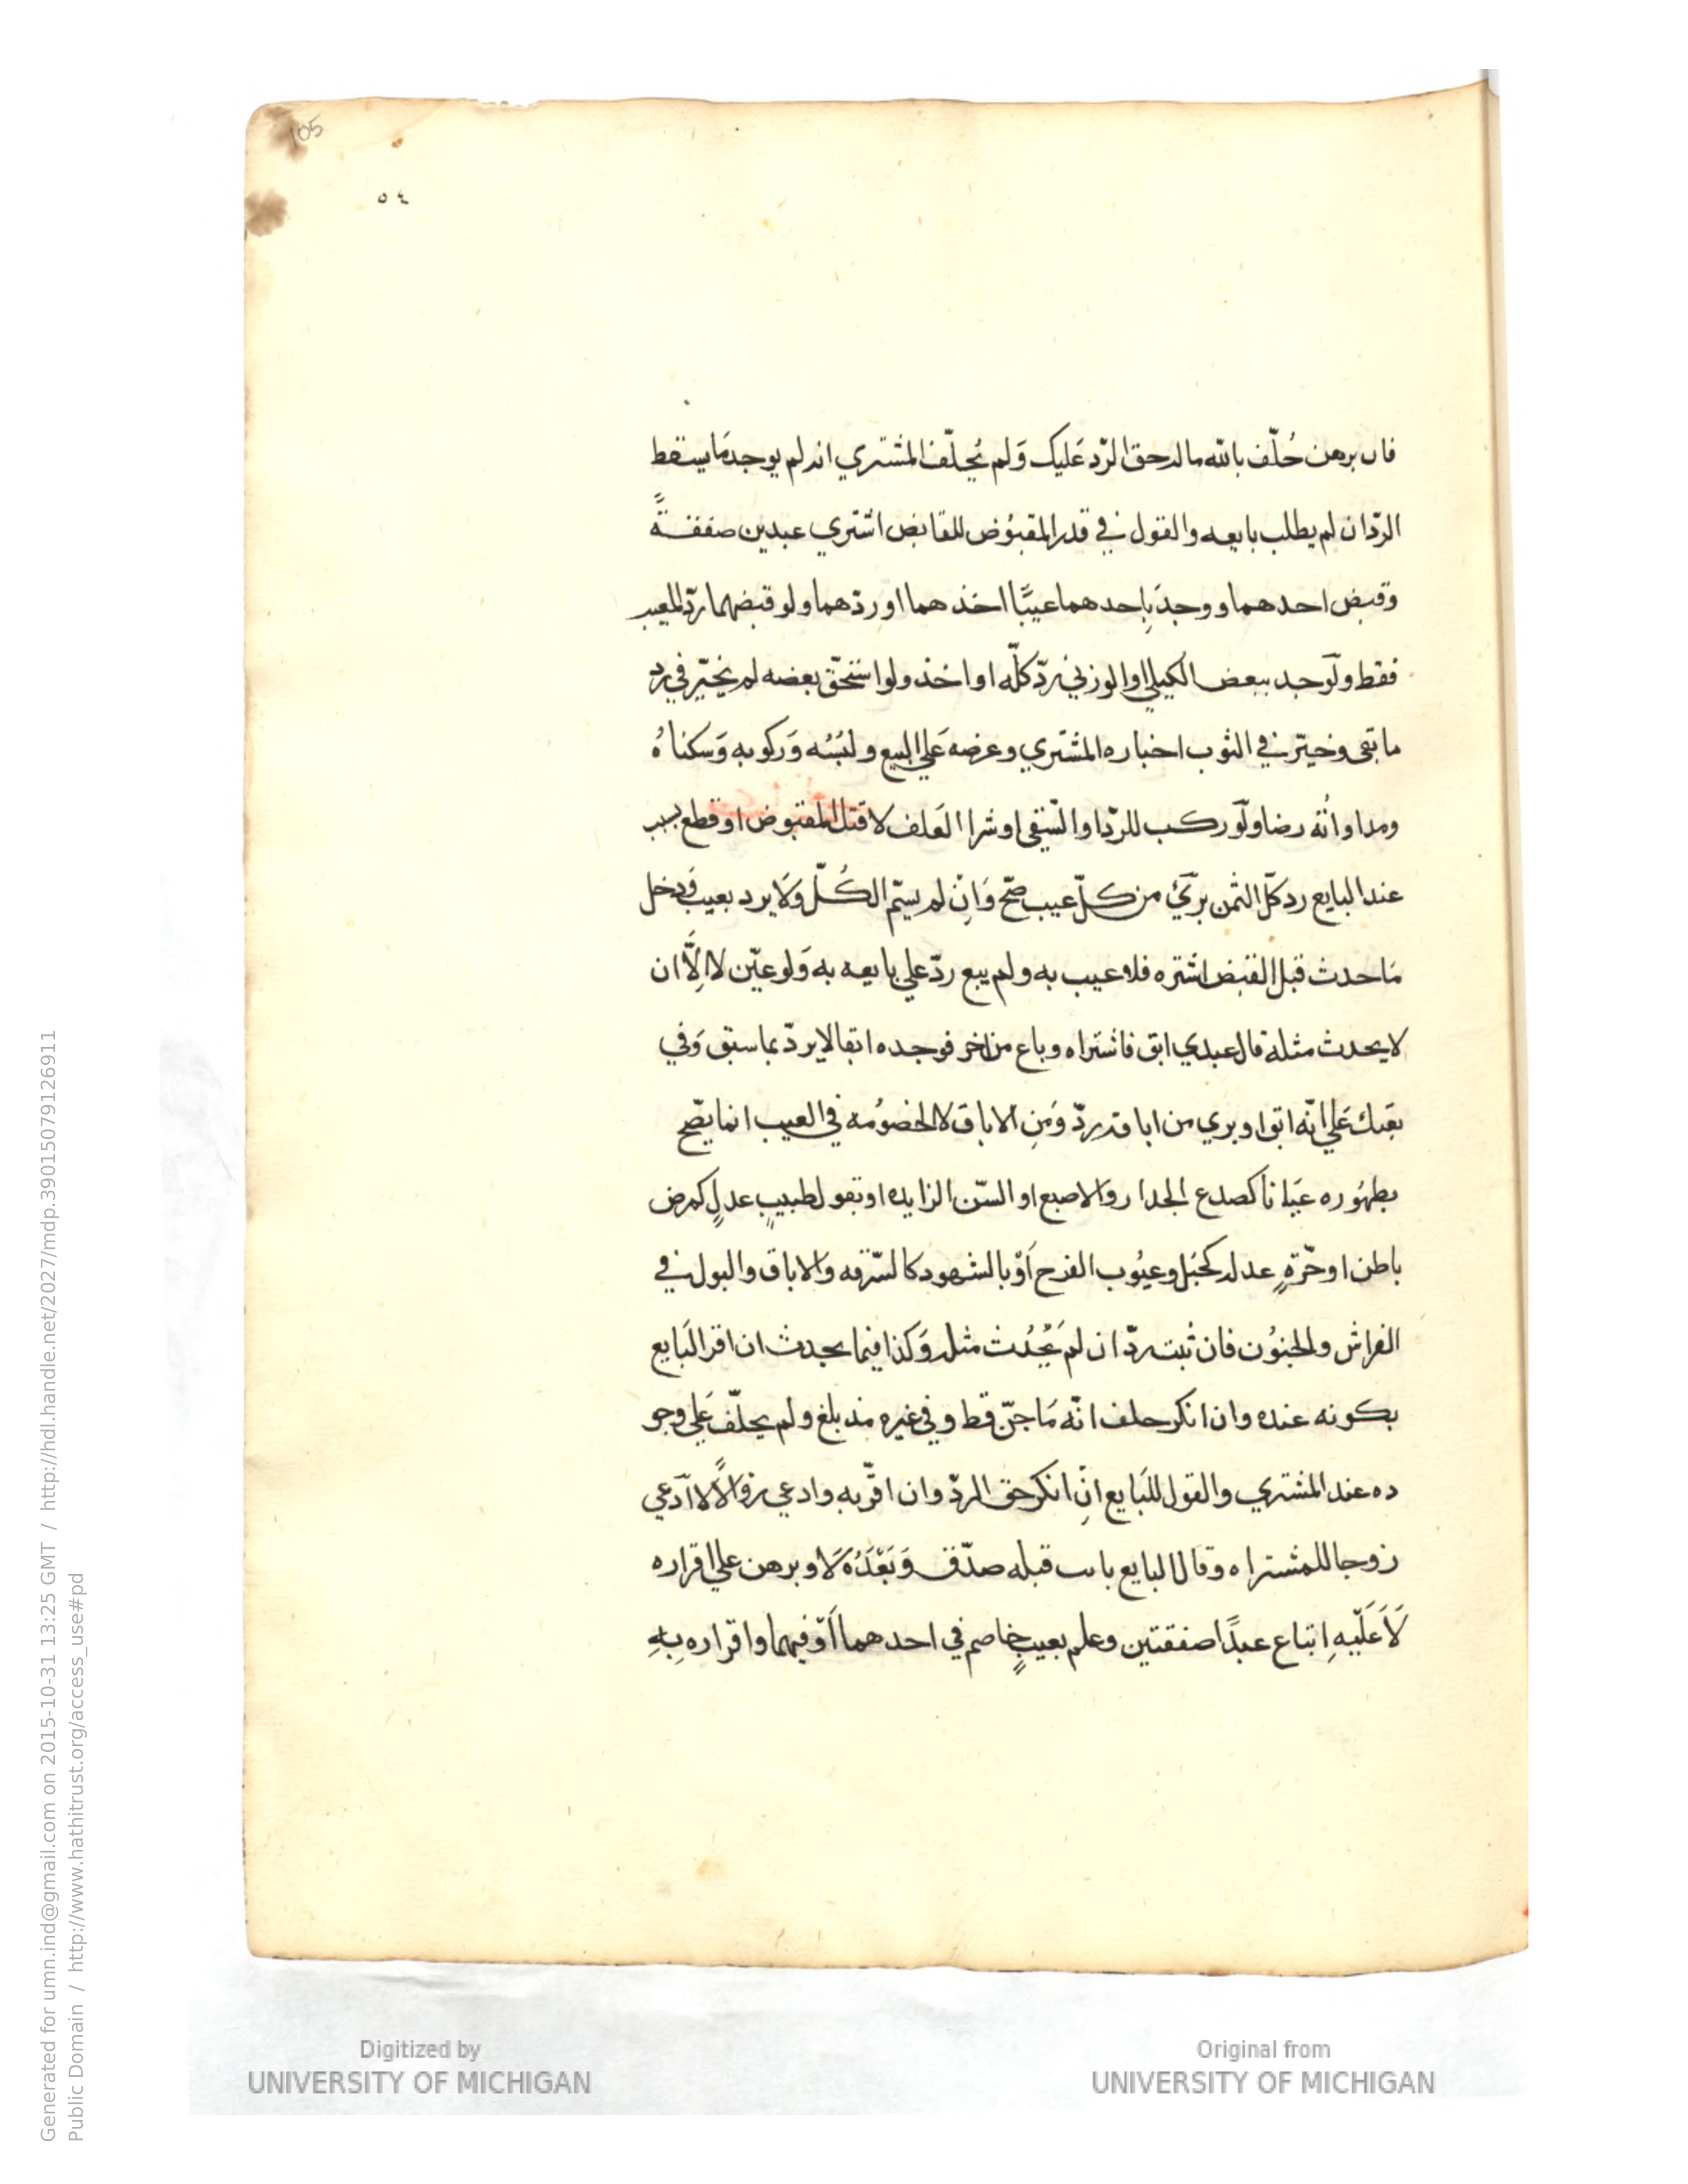 105
٥٤
فان برهن حُلّف بالله ماله حق الرّد عَليك وَلم يُحلّف المشتري انه لم يوجد مَا يسقط
الردّ ان لم يطلب بايعه والقول في قدر المقبُوض للقابض اشتري عبدين صفقـةً
وقبض احدهما ووجدَ بِاحدهما عيبًا اخذهما او ردّهما ولو قبضهما ردّ المعيب
فقط ولَو وجد ببعض الكيلي او الوزني ردّ كلّه او اخذ ولو استحقّ بعضه لم يخيّر في رد
ما بقى وخيّر في الثوب اخباره المشتري وعرضه عَلي البيع ولبسُه وَركوبه وَسكناهُ
ومداواتُه رضا ولَو ركب للردّ او السّقى او شرا العَلف لا قتل المقبوض او قطع بسبب
عند البايع رد كلّ الثمن بَريَ من كلّ عيب صحّ وَاِن لم يسمّ الكُلّ وَلا يرد بعيب فَدخل
مَا حدث قبل القبض اشتره فلا عيب به ولم يبع ردّ علي بايعه به وَلو عيّن لا اِلّا ان
لا يحدث مثله قال عبدي ابق فاشتراه وباع من اخر فوجده ابقا لا يردّ بما سبق وَفي
بعتك عَلي انّه ابق او بري من اباقه ردّ وَمِن الاباق لا الخصُومه في العيب انما يصّح
بظهُوره عيَانا كصدع الجدار والاصبع او السّن الزايده او بقول طبيبٍ عدلٍ كمرض
باطن او حّرّةٍ عدله كحبَل وعيُوب الفرح اَوْ بالشهود كالسّرقه والاباق والبول في
الفراش والجنُون فان ثبت ردّ ان لم يَحْدُث مثله وَكذا فيما يحدث ان اقر البَايع
بكونه عنده وان انكر حلف انّه مَا جنّ قط وفي غيره مذ بلغ ولم يحلّف عَلي وجو
ده عند المشتري والقول للبَايع اِن انكر حق الردّ وان اقرّ به وادعي زوالًا لا ادّعي
زوجا للمشتراه وقال البايع بانت قبله صدّق وَبَعْدَهُ لَا وبرهن علي اقراره
لَا عَلَيه اِبتاع عبدًا صفقتين وعلم بعيبٍ خاصم في احدهما اَوْ فيهما واقراره بِهِ
Digitized by
UNIVERSITY OF MICHIGAN
Original from
UNIVERSITY OF MICHIGAN
Generated for umn.ind@gmail.com on 2015-10-31 13:25 GMT / http://hdl.handle.net/2027/mdp.39015079126911
Public Domain / http://www.hathitrust.org/access_use#pd